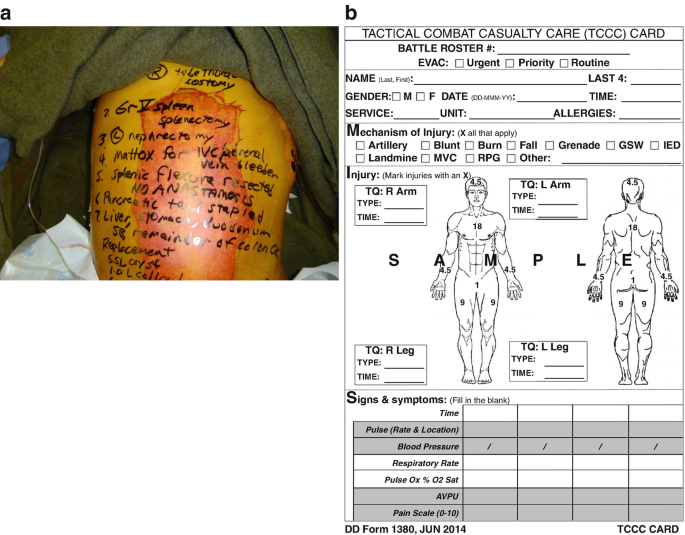 a
b
R tube thora-
costomy
2. Gr V spleen
splenectomy
3. L nephrectomy
4. Mattox for IVC/renal
vein bleeden
5. Splenic flexure resected
NO ANASTMOSIS
6. Pancreatic tail stapled
7. Liver, stomach, duodenum
SB, remainder of colon
Replacement
5.5L cryst
TACTICAL COMBAT CASUALTY CARE (TCCC) CARD
BATTLE ROSTER #:
EVAC: Urgent Priority Routine
NAME (Last, First): LAST 4:
GENDER: M F DATE (DD-MMM-YY): TIME:
SERVICE: UNIT: ALLERGIES:
Mechanism of Injury: (X all that apply)
Artillery Blunt Burn Fall Grenade GSW IED
Landmine MVC RPG Other:
Injury: (Mark injuries with an X)
TQ: R Arm
TYPE:
TIME:
TQ: L Arm
TYPE:
TIME:
4.5 4.5
18 18
S A M P L E
4.5 4.5 4.5 4.5
1 1
9 9 9 9
TQ: R Leg
TYPE:
TIME:
TQ: L Leg
TYPE:
TIME:
Signs & symptoms: (Fill in the blank)
Time
Pulse (Rate & Location)
Blood Pressure / / / /
Respiratory Rate
Pulse Ox % O2 Sat
AVPU
Pain Scale (0-10)
DD Form 1380, JUN 2014 TCCC CARD